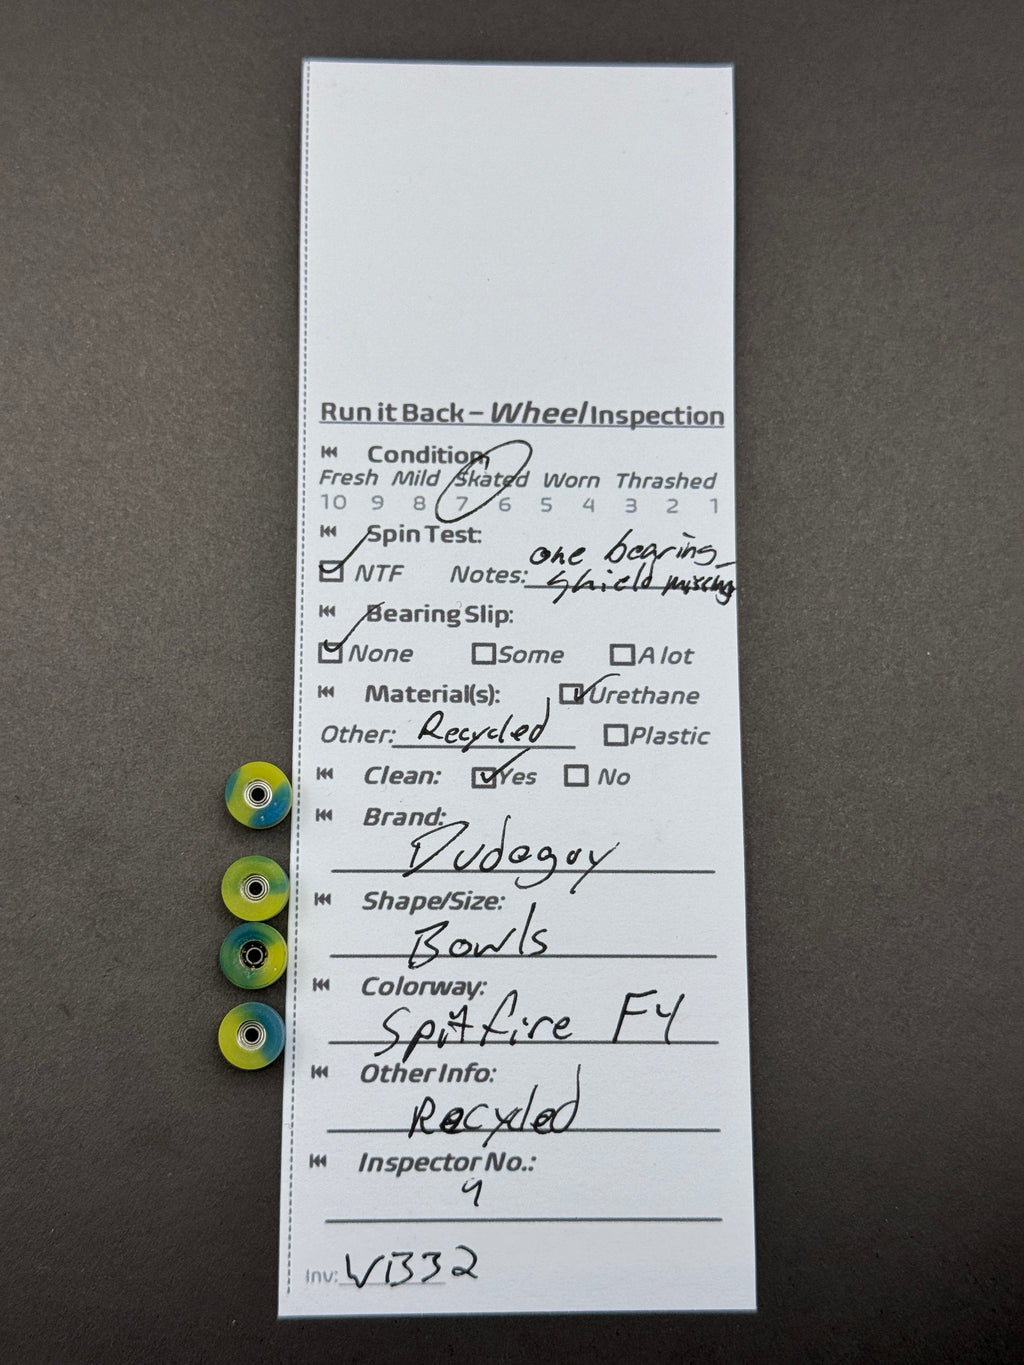 Run it Back – Wheel Inspection
Condition
Fresh Mild Skated Worn Thrashed
10 9 8 7 6 5 4 3 2 1
Spin Test:
one bearing
NTF Notes: shield missing
Bearing Slip:
None Some A lot
Material(s): Urethane
Other: Recycled Plastic
Clean: Yes No
Brand:
Dudeguy
Shape/Size:
Bowls
Colorway:
Spitfire F4
Other Info:
Recycled
Inspector No.:
9
Inv: WB32